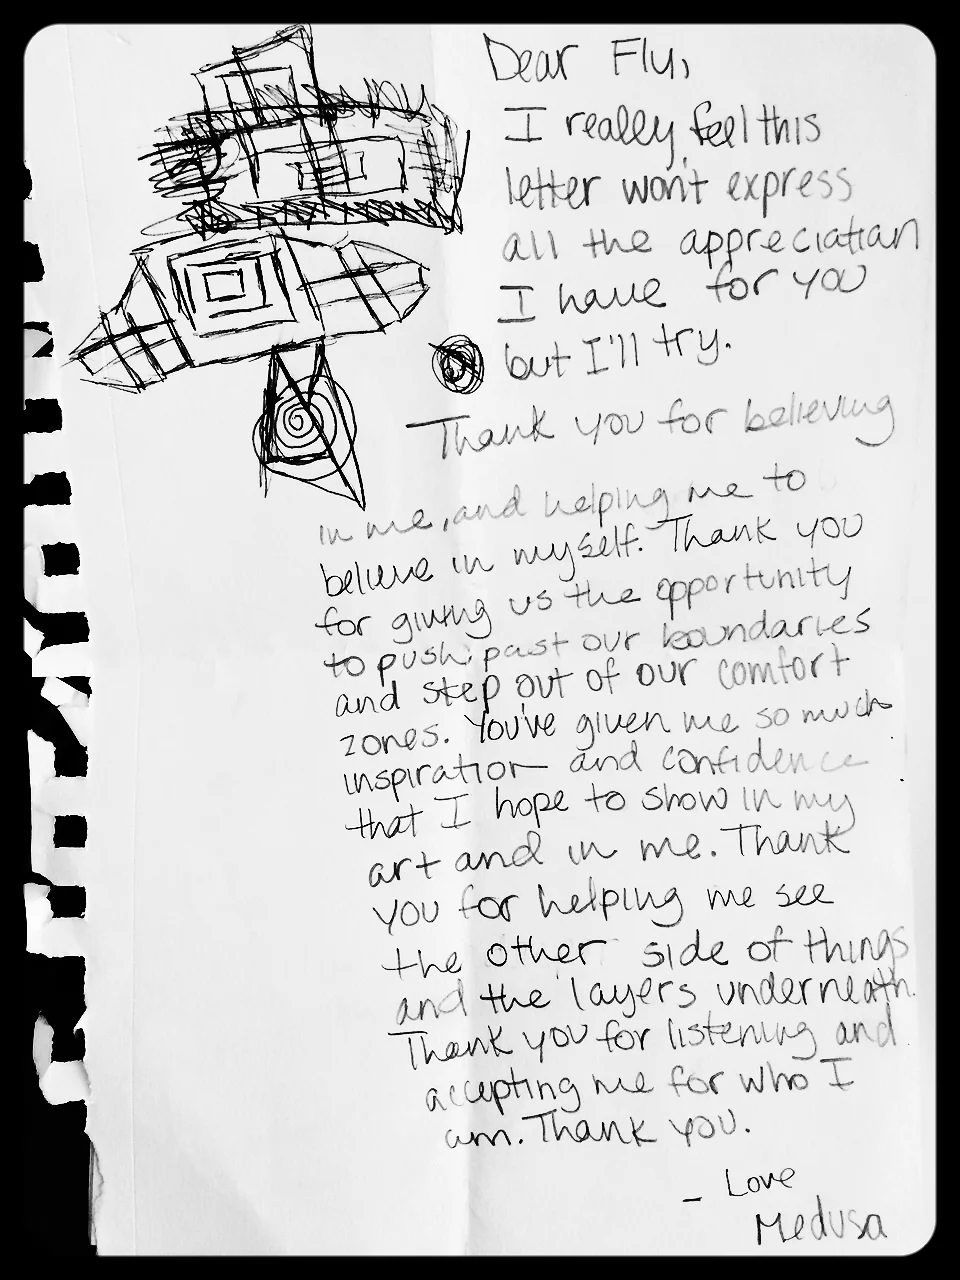 Dear Fly,
I really feel this
letter won't express
all the appreciation
I have for you
but I'll try.
Thank you for believing
in me, and helping me to
believe in myself. Thank you
for giving us the opportunity
to push past our boundaries
and step out of our comfort
zones. You've given me so much
inspiration and confidence
that I hope to show in my
art and in me. Thank
you for helping me see
the other side of things
and the layers underneath.
Thank you for listening and
accepting me for who I
am. Thank you.
- Love
Medusa